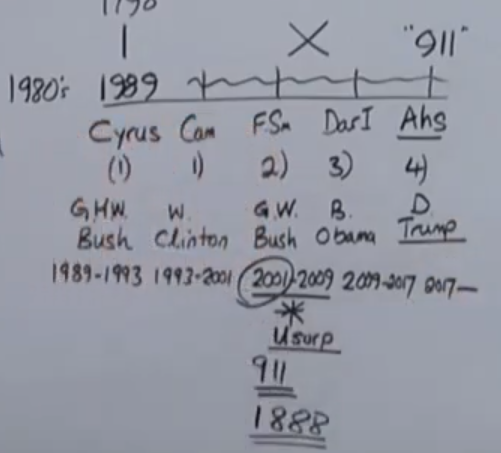 1798
X "911"
1980's 1989
Cyrus Cam F.Sm Dar I Ahs
(1) 1) 2) 3) 4)
G.H.W. W. G.W. B. D.
Bush Clinton Bush Obama Trump
1989-1993 1993-2001 2001-2009 2009-2017 2017—
Usurp
911
1888